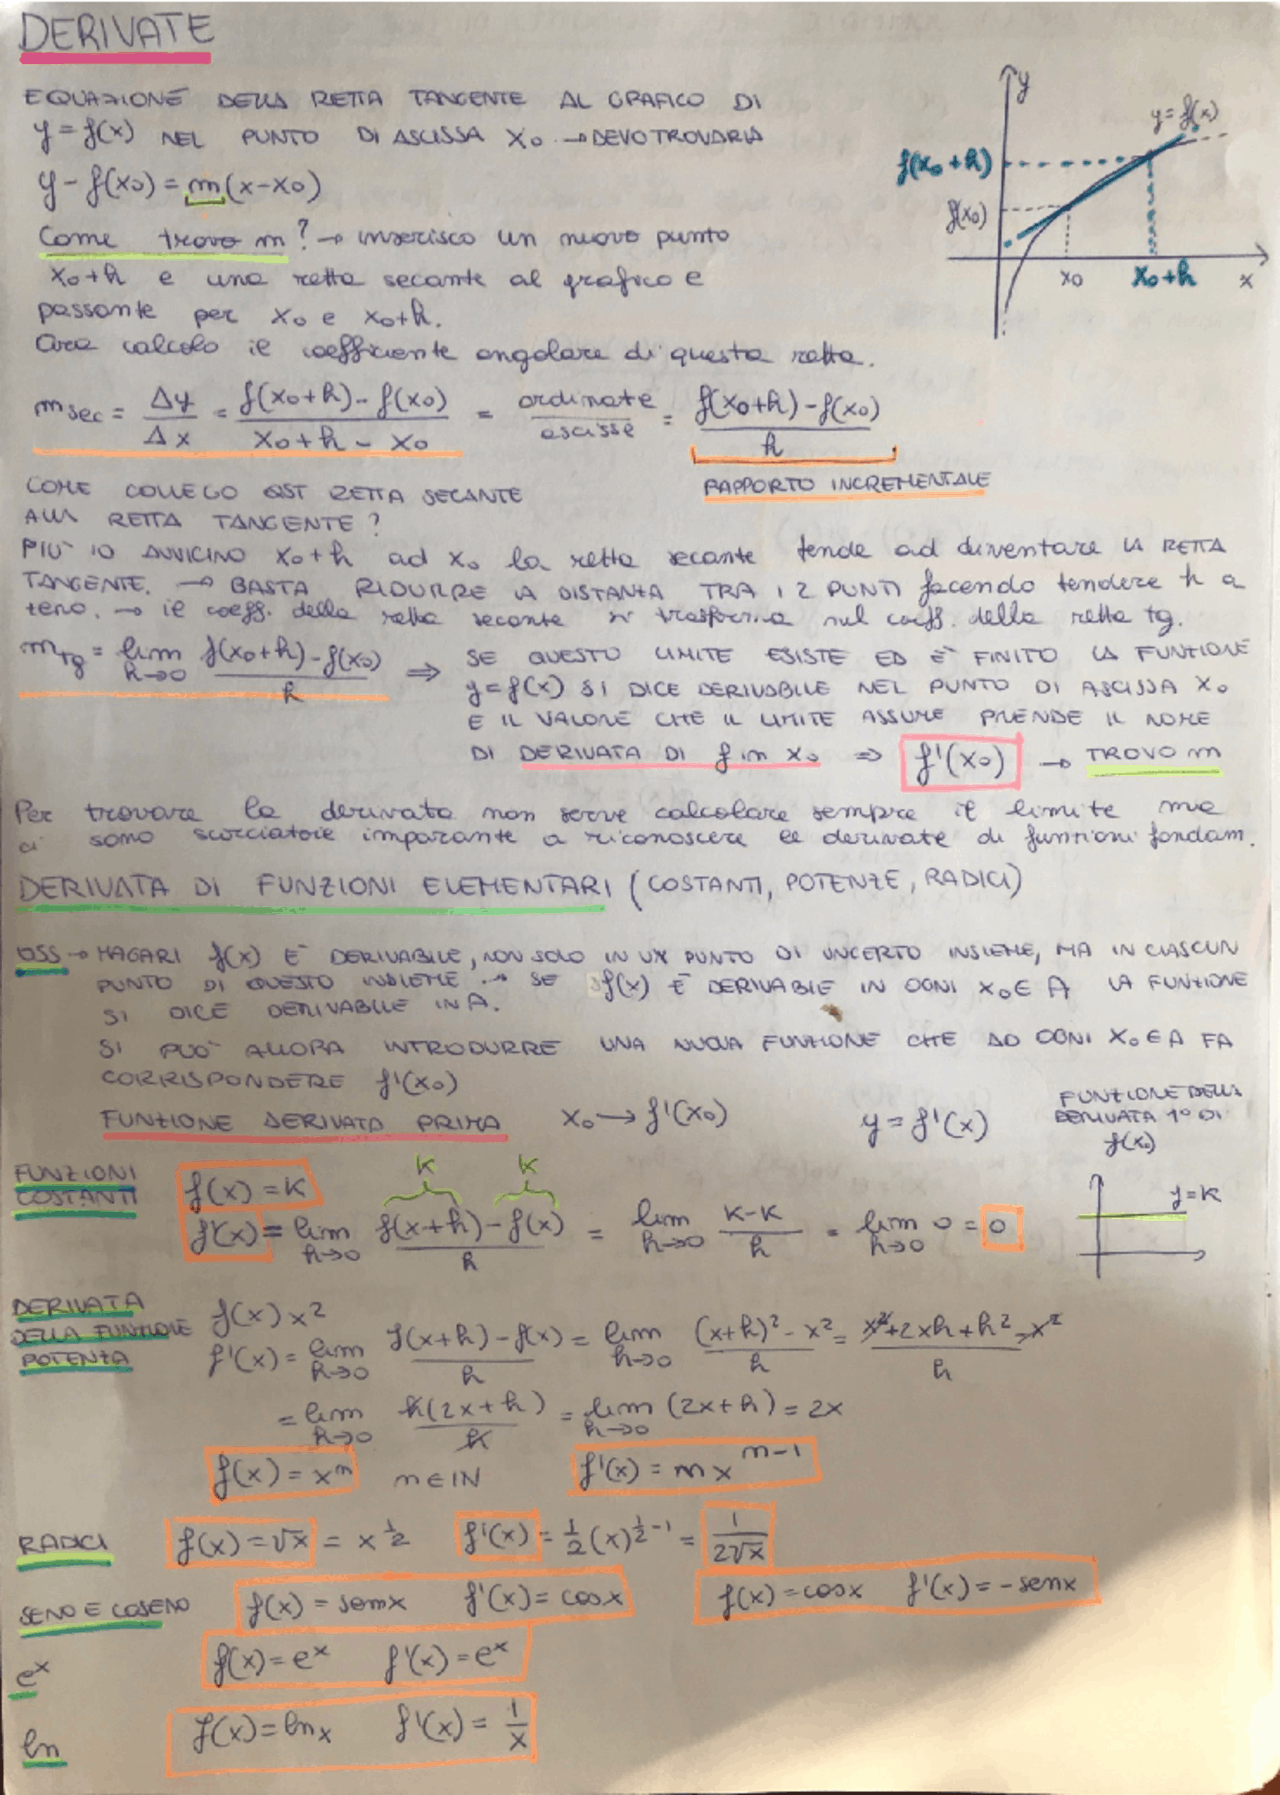 DERIVATE
EQUAZIONE DELLA RETTA TANGENTE AL GRAFICO DI
y = f(x) NEL PUNTO DI ASCISSA x₀ → DEVO TROVARLA
y - f(x₀) = m(x-x₀)
Come trovo m? → inserisco un nuovo punto
x₀+h e una retta secante al grafico e
passante per x₀ e x₀+h.
Ora calcolo il coefficiente angolare di questa retta.
y
y = f(x)
f(x₀+h)
f(x₀)
x₀ x₀+h x
m sec = Δy/Δx = f(x₀+h) - f(x₀)/x₀+h - x₀ = ordinate/ascisse = f(x₀+h) - f(x₀)/h
RAPPORTO INCREMENTALE
COME COLLEGO QST RETTA SECANTE
ALLA RETTA TANGENTE?
PIU' IO AVVICINO x₀+h ad x₀ la retta secante tende ad diventare LA RETTA
TANGENTE. → BASTA RIDURRE LA DISTANZA TRA I 2 PUNTI facendo tendere h a
zero. → il coeff. della retta secante si trasforma nel coeff. della retta tg.
m tg = lim h→0 f(x₀+h) - f(x₀)/h ⇒ SE QUESTO LIMITE ESISTE ED E' FINITO LA FUNZIONE
y = f(x) SI DICE DERIVABILE NEL PUNTO DI ASCISSA x₀
E IL VALORE CHE IL LIMITE ASSUME PRENDE IL NOME
DI DERIVATA DI f in x₀ ⇒ f'(x₀) → TROVO m
Per trovare la derivata non serve calcolare sempre il limite ma
ci sono scorciatoie imparante a riconoscere le derivate di funzioni fondam.
DERIVATA DI FUNZIONI ELEMENTARI (COSTANTI, POTENZE, RADICI)
OSS → MAGARI f(x) E' DERIVABILE, NON SOLO IN UN PUNTO DI UNCERTO INSIEME, MA IN CIASCUN
PUNTO DI QUESTO INSIEME → SE f(x) E' DERIVABILE IN OGNI x₀ ∈ A LA FUNZIONE
SI DICE DERIVABILE IN A.
SI PUO' ALLORA INTRODURRE UNA NUOVA FUNZIONE CHE AD OGNI x₀ ∈ A FA
CORRISPONDERE f'(x₀)
FUNZIONE DERIVATA PRIMA x₀ → f'(x₀) y = f'(x) FUNZIONE DELLA
DERIVATA 1° DI
f(x)
FUNZIONI
COSTANTI
f(x) = K
K K
f'(x) = lim h→0 f(x+h) - f(x)/h = lim h→0 K-K/h = lim h→0 0 = 0
y=K
DERIVATA
DELLA FUNZIONE
POTENZA
f(x) x²
f'(x) = lim h→0 f(x+h) - f(x)/h = lim h→0 (x+h)² - x²/h = x²+2xh+h²-x²/h
= lim h→0 h(2x+h)/h = lim h→0 (2x+h) = 2x
f(x) = xⁿ n ∈ IN f'(x) = n xⁿ⁻¹
RADICI f(x) = √x = x^1/2 f'(x) = 1/2 (x)^1/2-1 = 1/2√x
SENO E COSENO f(x) = senx f'(x) = cosx f(x) = cosx f'(x) = -senx
eˣ f(x) = eˣ f'(x) = eˣ
ln f(x) = lnx f'(x) = 1/x